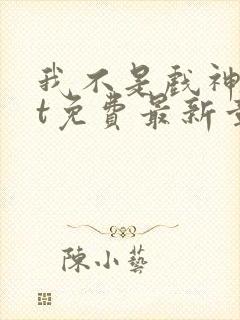 我不是戲神
t免費最新章
陳小藝